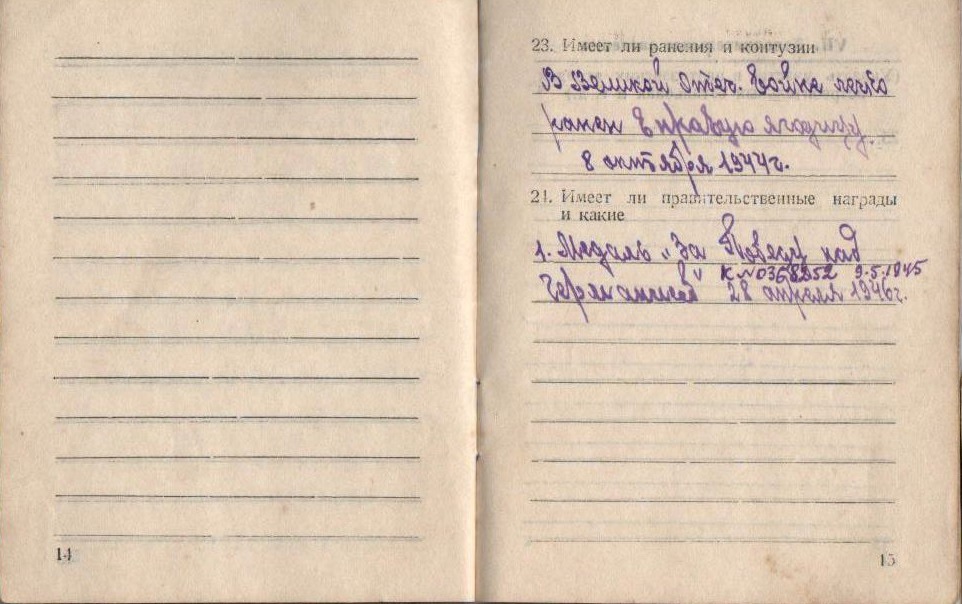 23. Имеет ли ранения и контузии
В Великой Отеч. войне легко
ранен в правую ягодицу
8 октября 1944г.
24. Имеет ли правительственные награды
и какие
1. Медаль „За Победу над
К №0368252 9.5.1945
Германией" 28 апреля 1946г.
14
15